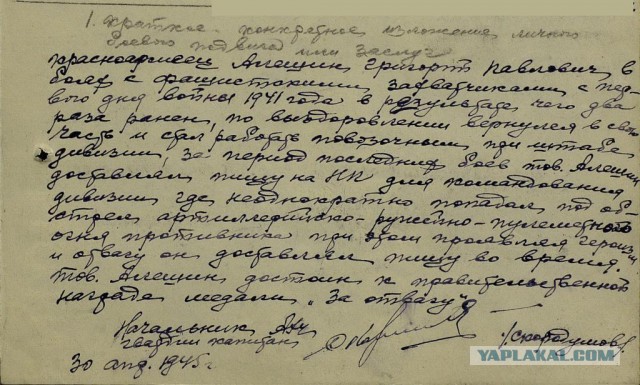 1. Краткое конкретное изложение личного
боевого подвига или заслуг
красноармеец Алещин Григорий Павлович в
боях с фашистскими захватчиками с пер-
вого дня войны 1941 года в результате чего два
раза ранен, по выздоровлении вернулся в свою
часть и стал работать повозочным при штабе
дивизии, за период последних боев тов. Алещин
доставлял пищу на НП для командования
дивизии где неоднократно попадал под об-
стрел артиллерийско-ружейно-пулеметного
огня противника при этом проявляя героизм
и отвагу он доставлял пищу во время.
тов. Алещин достоин к правительственной
награде медали "За отвагу"
Начальник АХЧ
гвардии капитан
/Скородумов/
30 апр. 1945 г.
YAPLAKAL.COM